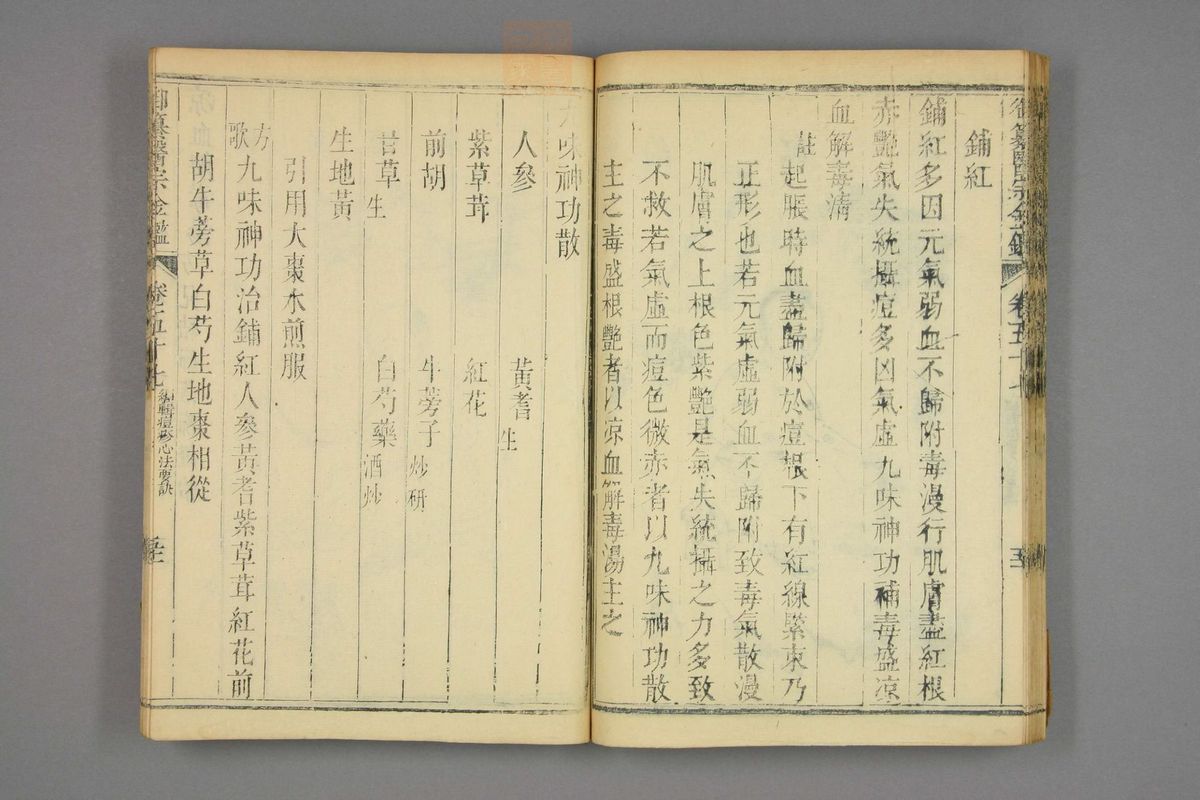 御纂醫宗金鑑 卷五十七
鋪紅
鋪紅多因元氣弱血不歸附毒漫行肌膚盡紅根
赤艷氣失統攝痘多凶氣虛九味神功補毒盛凉
血解毒清
註起脹時血盡歸附於痘根下有紅線緊束乃
正形也若元氣虛弱血不歸附致毒氣散漫
肌膚之上根色紫艷是氣失統攝之力多致
不救若氣虛而痘色微赤者以九味神功散
主之毒盛根艷者以凉血解毒湯主之
九味神功散
人參 黃耆生
紫草茸 紅花
前胡 牛蒡子炒研
甘草生 白芍藥酒炒
生地黃
引用大棗水煎服
方歌九味神功治鋪紅人參黃耆紫草茸紅花前
胡牛蒡草白芍生地棗相從
御纂醫宗金鑑 卷五十七 編輯痘疹心法要訣